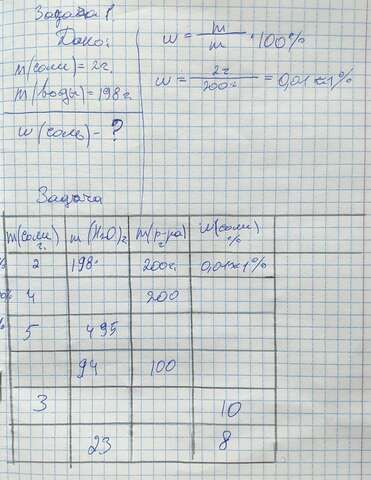 Задача 1.
Дано:
m(соли) = 2г.
m(воды) = 198г.
w(соль) - ?
w = m / m · 100%
w = 2г / 200г = 0,01 × 1%
Задача
m(соли) г. m(H₂O) г m(р-ра) г w(соли) %
2 198 200г. 0,01×1%
4 200
5 495
94 100
3 10
23 8